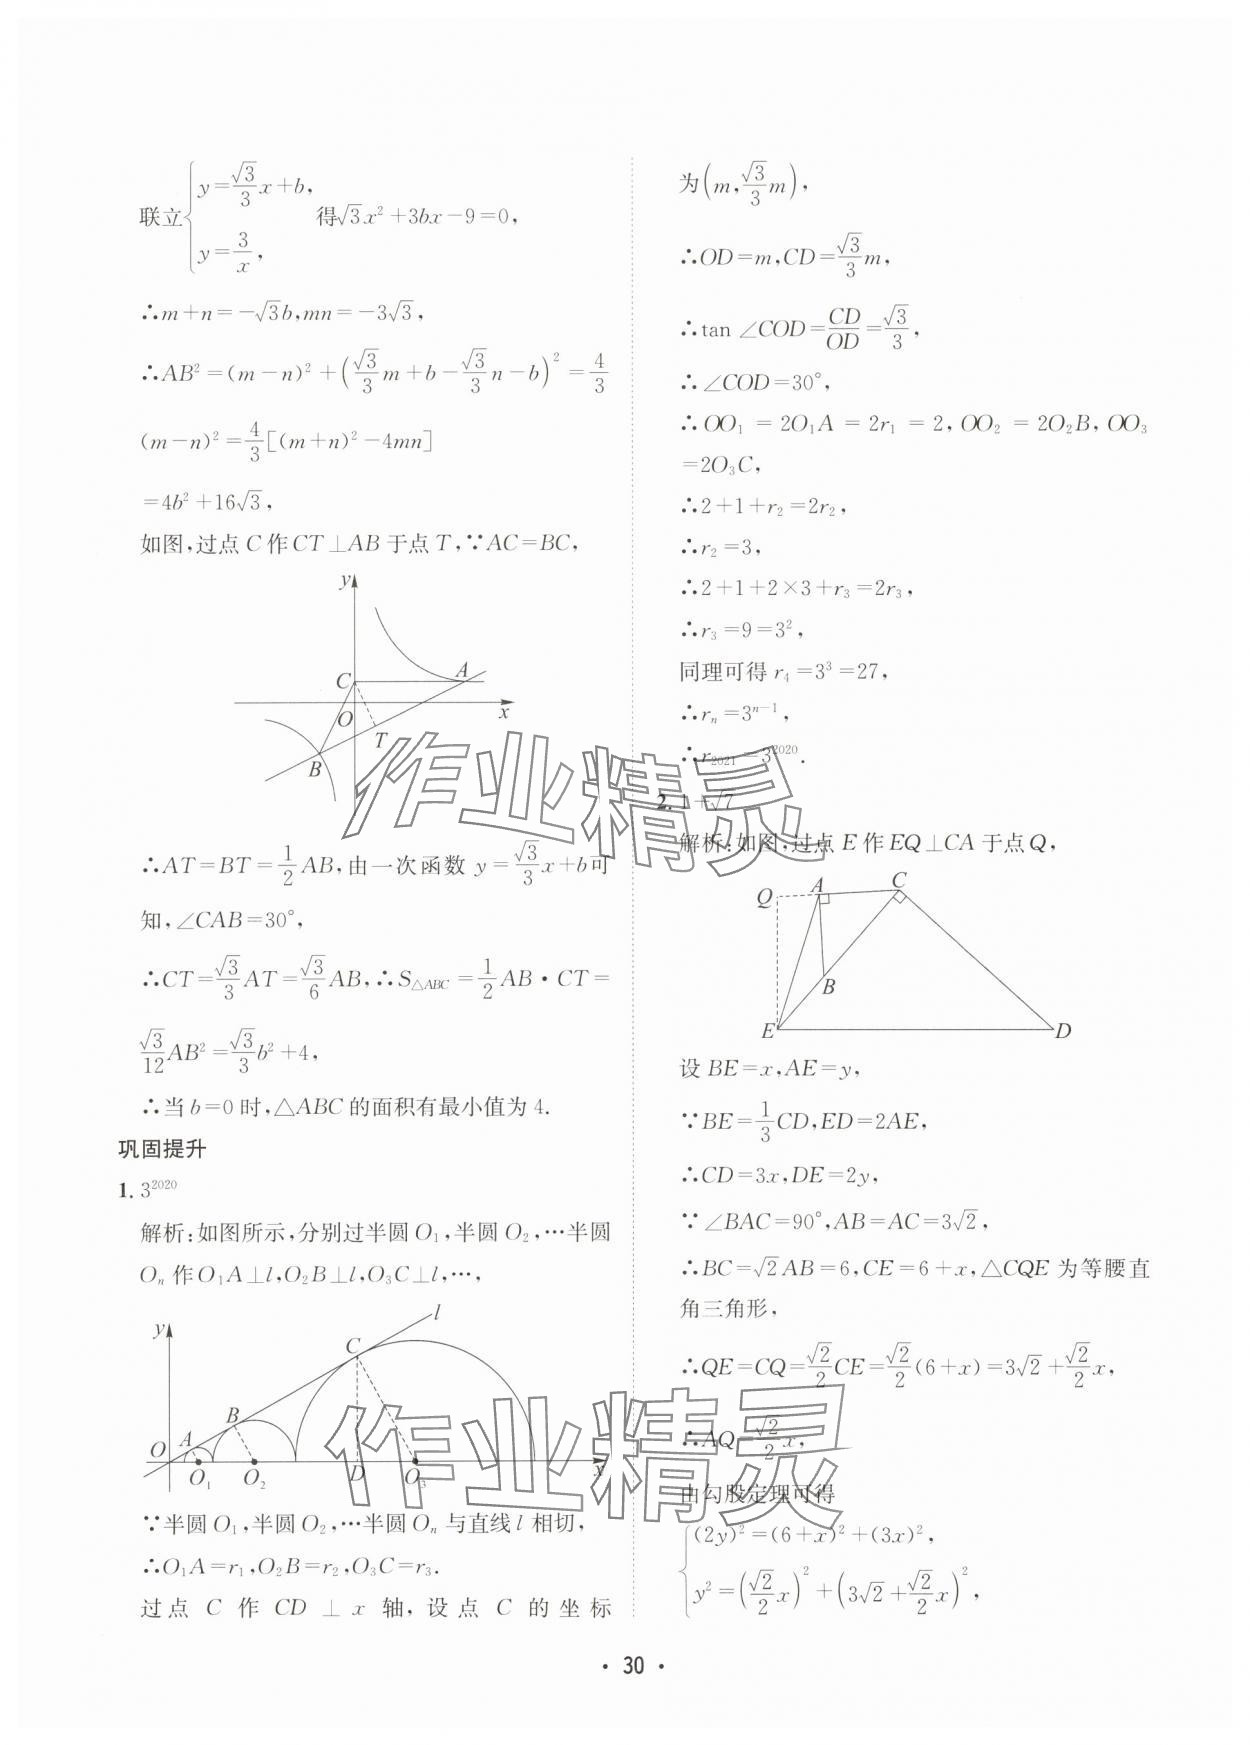 联立{y=√3/3 x+b, y=3/x, 得√3x²+3bx-9=0,
∴m+n=-√3b,mn=-3√3,
∴AB²=(m-n)²+(√3/3 m+b-√3/3 n-b)²=4/3
(m-n)²=4/3[(m+n)²-4mn]
=4b²+16√3,
如图,过点C作CT⊥AB于点T,∵AC=BC,
y
C
A
O
x
T
B
∴AT=BT=1/2 AB,由一次函数 y=√3/3 x+b可
知,∠CAB=30°,
∴CT=√3/3 AT=√3/6 AB,∴S△ABC=1/2 AB·CT=
√3/12 AB²=√3/3 b²+4,
∴当b=0时,△ABC的面积有最小值为4.
巩固提升
1. 3²⁰²⁰
解析:如图所示,分别过半圆O₁,半圆O₂,…半圆
Oₙ作O₁A⊥l,O₂B⊥l,O₃C⊥l,…,
y
l
C
B
A
O
O₁
O₂
D
O₃
x
∵半圆O₁,半圆O₂,…半圆Oₙ与直线l相切,
∴O₁A=r₁,O₂B=r₂,O₃C=r₃.
过点 C 作 CD ⊥ x 轴,设点 C 的坐标
为(m,√3/3 m),
∴OD=m,CD=√3/3 m,
∴tan∠COD=CD/OD=√3/3,
∴∠COD=30°,
∴OO₁=2O₁A=2r₁=2,OO₂=2O₂B,OO₃
=2O₃C,
∴2+1+r₂=2r₂,
∴r₂=3,
∴2+1+2×3+r₃=2r₃,
∴r₃=9=3²,
同理可得r₄=3³=27,
∴rₙ=3ⁿ⁻¹,
∴r₂₀₂₁=3²⁰²⁰.
2. 1+√7
解析:如图,过点E作EQ⊥CA于点Q,
Q
A
C
B
E
D
设BE=x,AE=y,
∵BE=1/3 CD,ED=2AE,
∴CD=3x,DE=2y,
∵∠BAC=90°,AB=AC=3√2,
∴BC=√2AB=6,CE=6+x,△CQE为等腰直
角三角形,
∴QE=CQ=√2/2 CE=√2/2(6+x)=3√2+√2/2 x,
∴AQ=√2/2 x,
由勾股定理可得
{(2y)²=(6+x)²+(3x)²,
y²=(√2/2 x)²+(3√2+√2/2 x)²,
作业精灵
作业精灵
·30·